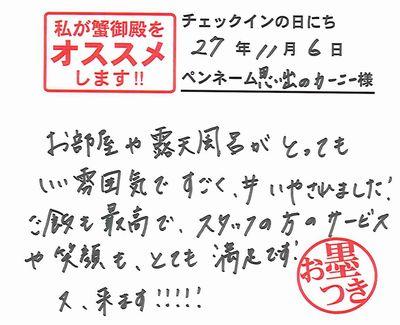 私が蟹御殿を
オススメ
します!!
チェックインの日にち
27年11月6日
ペンネーム思い出のカーニー様
お部屋や露天風呂がとっても
いい雰囲気ですごく、いやされました!
ご飯も最高で、スタッフの方のサービス
や笑顔も、とても満足です!
又、来ます!!!!!
お墨つき